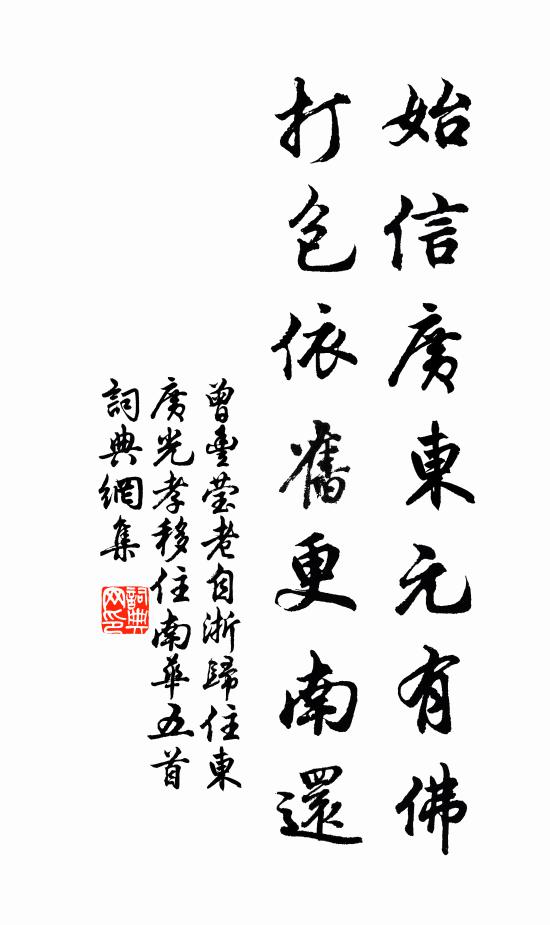 始信廣東元有佛
打包依舊更南還
曾豊瑩老自浙歸住東
廣光孝移住南華五首
詞典網集
詞典
网印